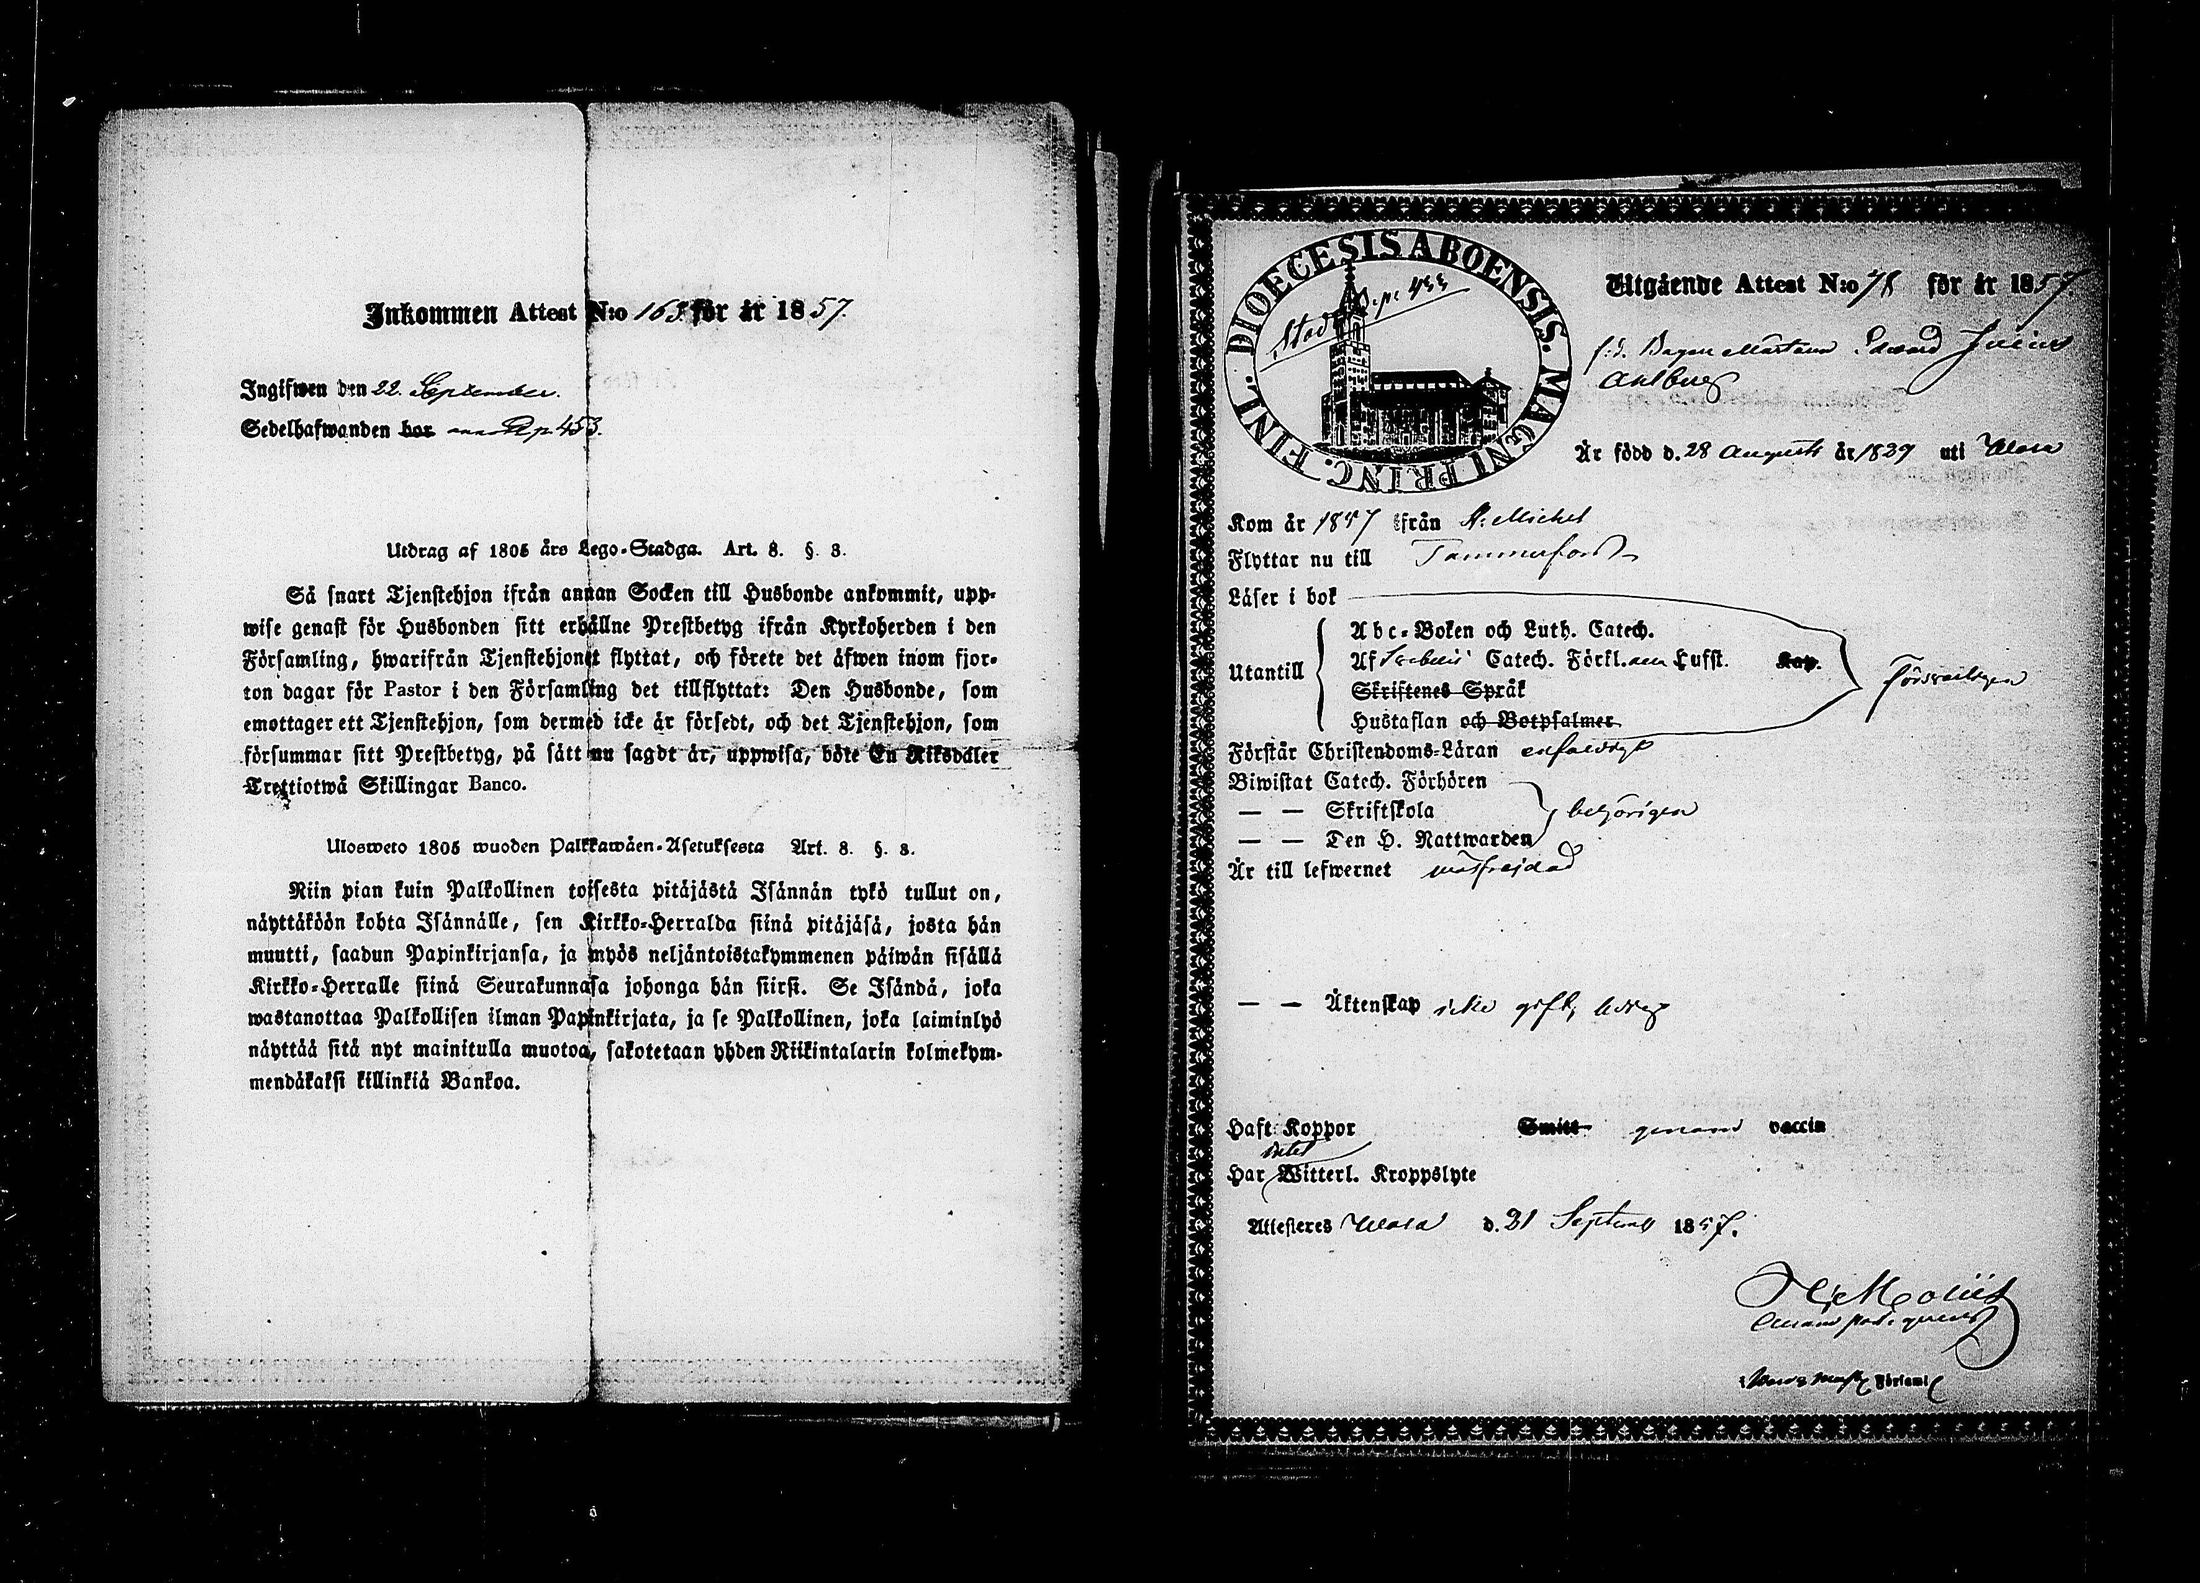 Inkommen Attest N:o 163 för år 1857.
Ingifwen den 22. September.
Sedelhafwanden bor p. 453.
Utdrag af 1805 års Lego-Stadga. Art. 8. §. 3.
Så snart Tjenstehjon ifrån annan Socken till Husbonde ankommit, upp-
wise genast för Husbonden sitt erhållne Prestbetyg ifrån Kyrkoherden i den
Församling, hwarifrån Tjenstehjonet flyttat, och förete det äfwen inom fjor-
ton dagar för Pastor i den Församling det tillflyttat: Den Husbonde, som
emottager ett Tjenstehjon, som dermed icke är försedt, och det Tjenstehjon, som
försummar sitt Prestbetyg, på sätt nu sagdt är, uppwisa, böte En Riksdaler
Trettiotwå Skillingar Banco.
Ulosweto 1805 wuoden Palkkawäen-Asetuksesta Art. 8. §. 3.
Niin pian kuin Palkollinen toisesta pitäjästä Isännän tykö tullut on,
näyttäköön kohta Isännälle, sen Kirkko-Herralda siinä pitäjäsä, josta hän
muutti, saadun Papinkirjansa, ja myös neljäntoistakymmenen päiwän sisällä
Kirkko-Herralle siinä Seurakunnasa johonga hän siirsi. Se Isändä, joka
wastanottaa Palkollisen ilman Papinkirjata, ja se Palkollinen, joka laiminlyö
näyttää sitä nyt mainitulla muotoa, sakotetaan yhden Riikintalarin kolmekym-
mendäkaksi killinkiä Bankoa.
DIOECESIS ABOENSIS. MAGNI PRINC. FINL.
Utgående Attest N:o 78 för år 1857.
f.d. Bagare Edward Julius
Ahlberg
Är född d. 28 Augusti år 1829 uti Wasa
Kom år 1847 ifrån St. Michel
Flyttar nu till Tammerfors
Läser i bok
Utantill
Abc-Boken och Luth. Catech.
Af Svebelii Catech. Förkl. Lufft. Kap.
Skriftenes Språk
Hustaflan och Botpsalmer
försvarligen
Förstår Christendoms-Läran enfaldigt
Biwistat Catech. Förhören
— — Skriftskola
— — Den H. Nattwarden
behörigen
Är till lefwernet wälfrejdad
— — Äktenskap icke gift, ledig
Haft Koppor Smitt genom vaccin
Har intet Witterl. Kroppslyte
Attesteras Wasa d. 21 Septemb 1857.